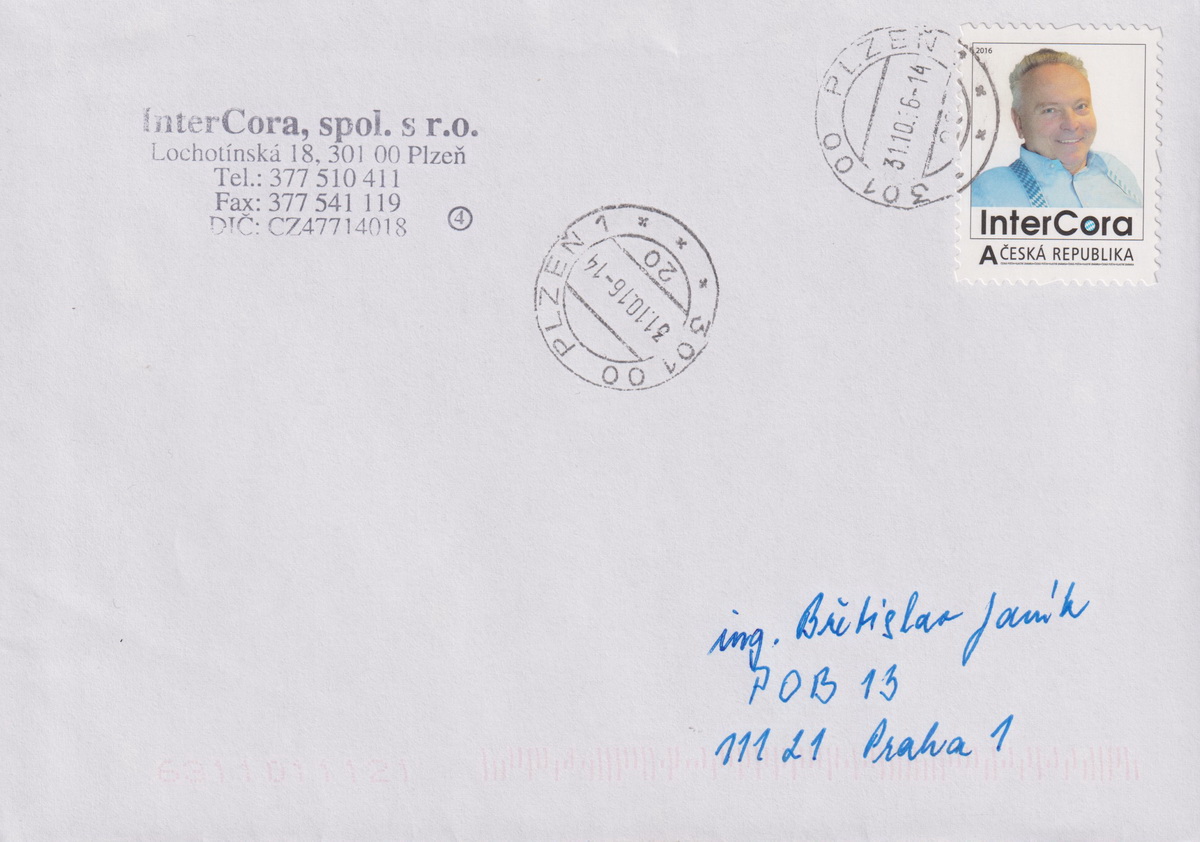 InterCora, spol. s r.o.
Lochotínská 18, 301 00 Plzeň
Tel.: 377 510 411
Fax: 377 541 119
DIČ: CZ47714018
4
PLZEŇ
31.10.16-14
301 00
2016
InterCora
A ČESKÁ REPUBLIKA
PLZEŇ 1
20
31.10.16-14
301 00
ing. Břetislav Janík
POB 13
111 21 Praha 1